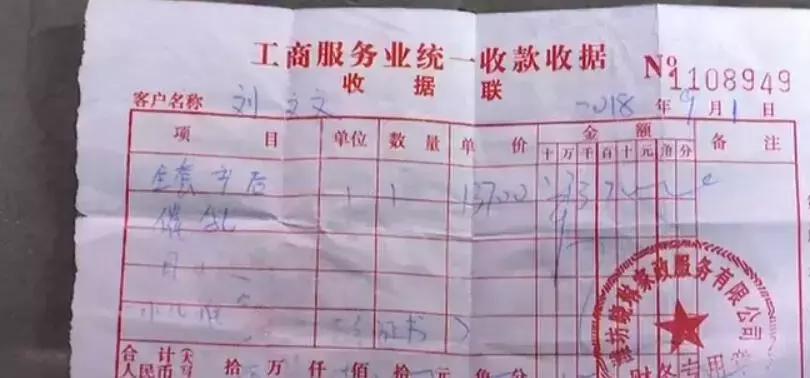 工商服务业统一收款收据
收据联
№1108949
客户名称 刘文文 2018年9月1日
项目 单位 数量 单价 金额 备注
十万千百十元角分
全套产后 1 1 13700 137
催乳
月
小儿推
证书
合计(大写)
人民币 拾万仟佰拾元角分
家政服务有限公司
财务专用章